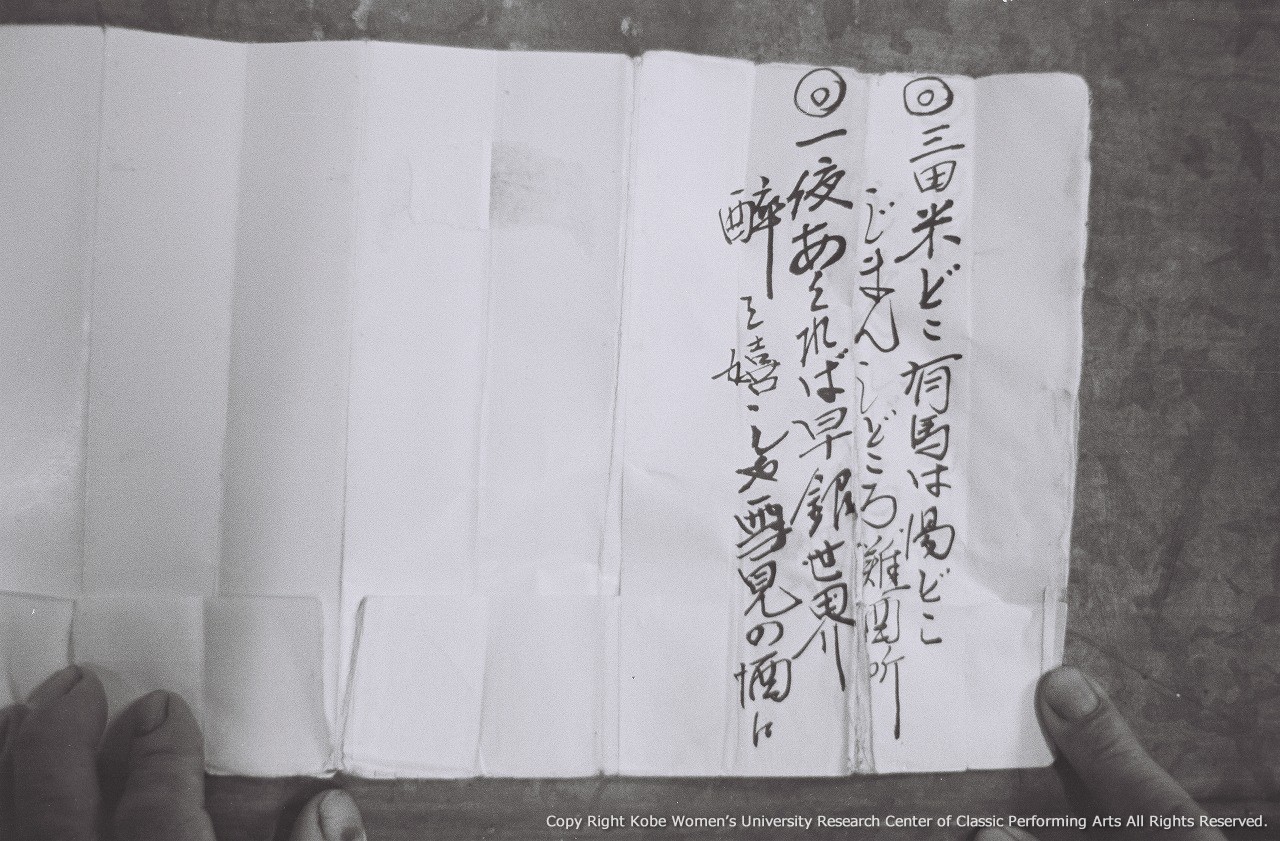 ◎三田米どこ有馬は湯どこ
じまん どころ難 所
◎一夜あくれば早銀世界
醉て嬉しや雪見の酒に
Copy Right Kobe Women's University Research Center of Classic Performing Arts All Rights Reserved.